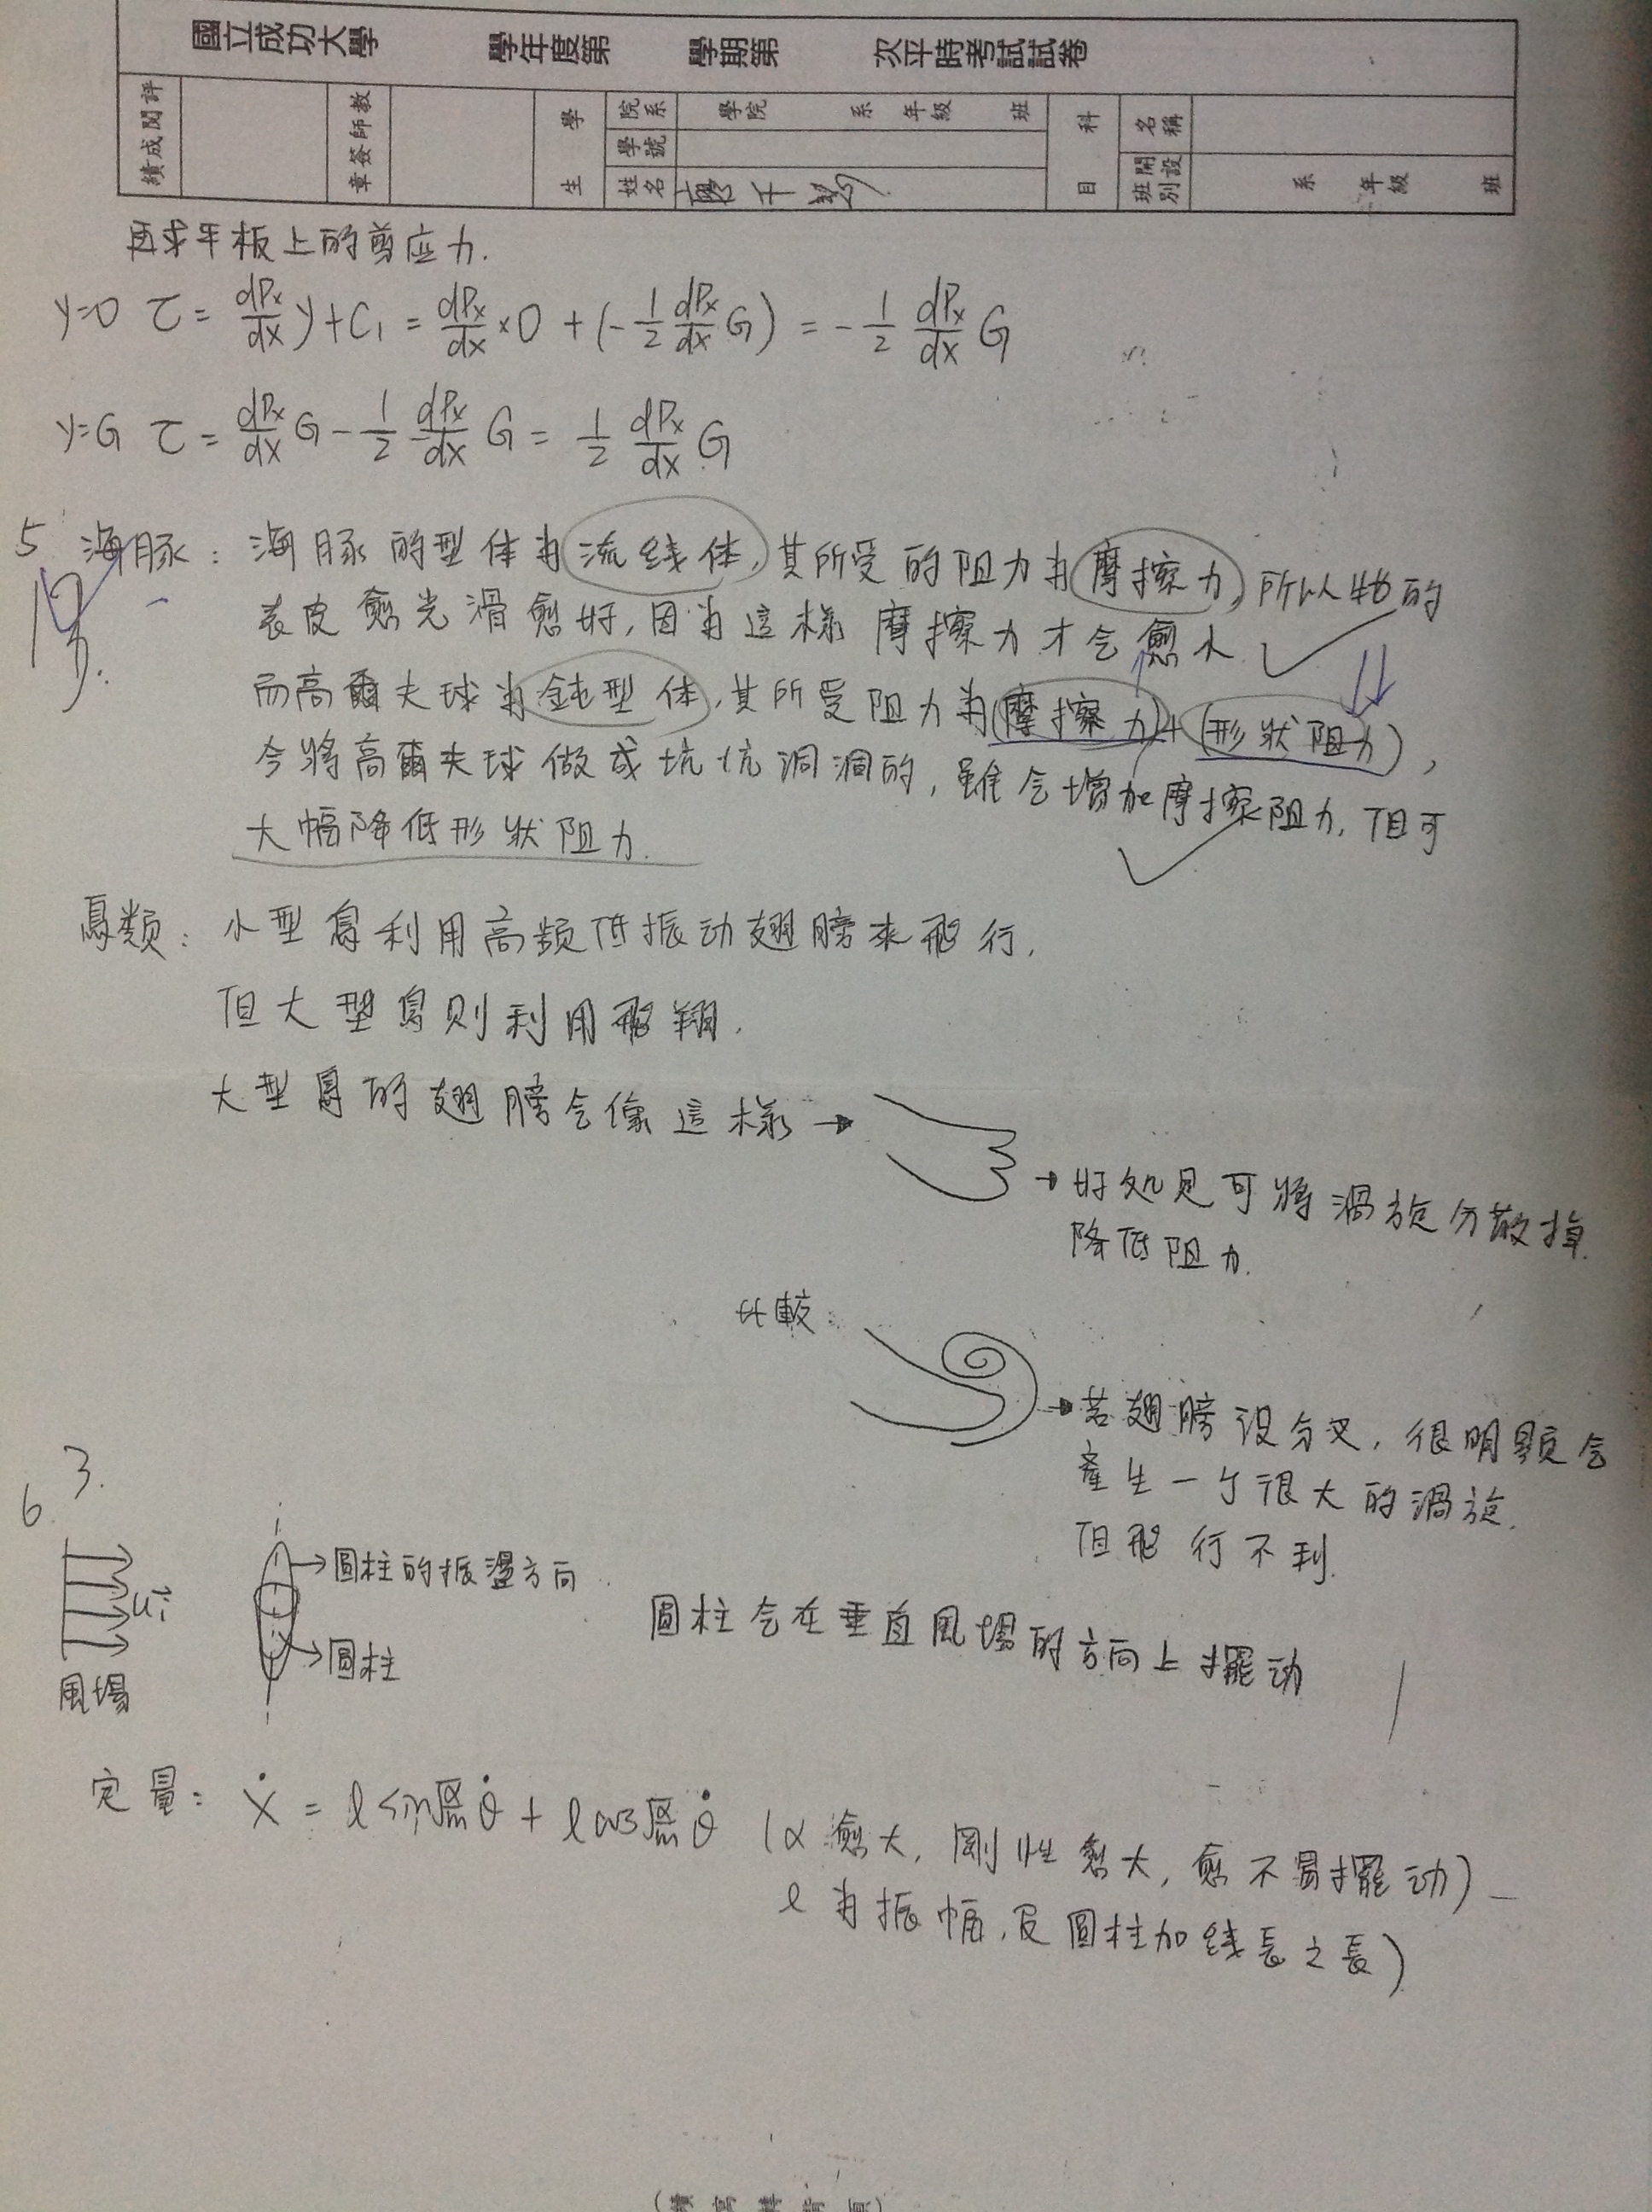 國立成功大學 學年度第 學期第 次平時考試試卷
評閱成績
教師簽章
學生
院系 學院 系 年級 班
學號
姓名
科目
名稱
開設班別 系 年級 班
再求平板上的剪应力.
y=0 τ = dPx/dx y + C₁ = dPx/dx × 0 + (-1/2 dPx/dx G) = -1/2 dPx/dx G
y=G τ = dPx/dx G - 1/2 dPx/dx G = 1/2 dPx/dx G
5 海豚: 海豚的型体为流线体, 其所受的阻力为摩擦力, 所以牠的
表皮愈光滑愈好, 因为這樣摩擦力才会愈小
而高爾夫球为鈍型体, 其所受阻力为(摩擦力)+(形狀阻力),
今將高爾夫球做成坑坑洞洞的, 雖会增加摩擦阻力, 但可
大幅降低形狀阻力.
鳥类: 小型鳥利用高频低振动翅膀來飛行.
但大型鳥則利用飛翔.
大型鳥的翅膀会像這樣→
→好处是可將渦旋分散掉
降低阻力.
比較:
→若翅膀沒分叉, 很明顯会
產生一个很大的渦旋.
但飛行不利.
3.
6.
uᵢ
風場
→圓柱的振盪方向
→圓柱
圓柱会在垂直風場的方向上擺动
定量: ẋ = l sin√(α/m) θ̇ + l cos√(α/m) θ̇ (α愈大, 剛性愈大, 愈不易擺动)
l为振幅, 及圓柱加线長之長)